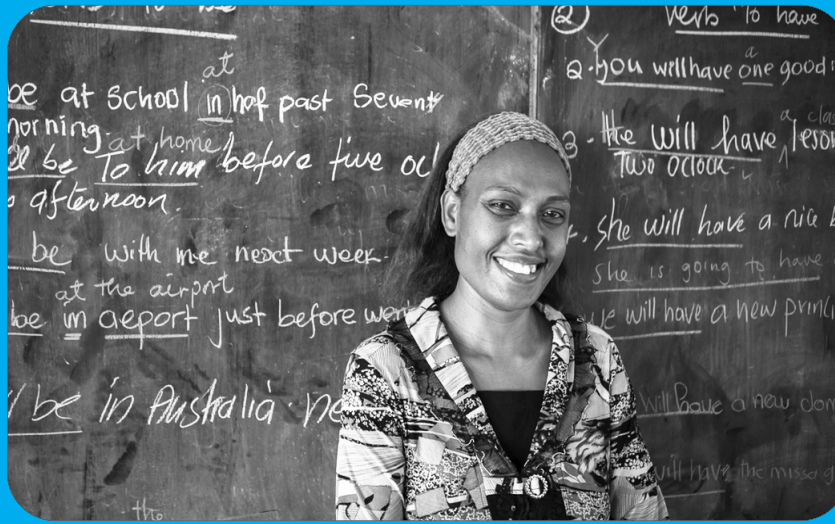 be
at
be at School in haf past Seventy
morning. at home
be To him before five
afternoon.
be with me next week.
at the airport
be in aeport just before
be in Australia
the
2
verb To have
a
2. You will have one good
a
3. He will have leson
Two oclock.
She will have a nice
she is going to have
we will have a new
will have a new
will have the